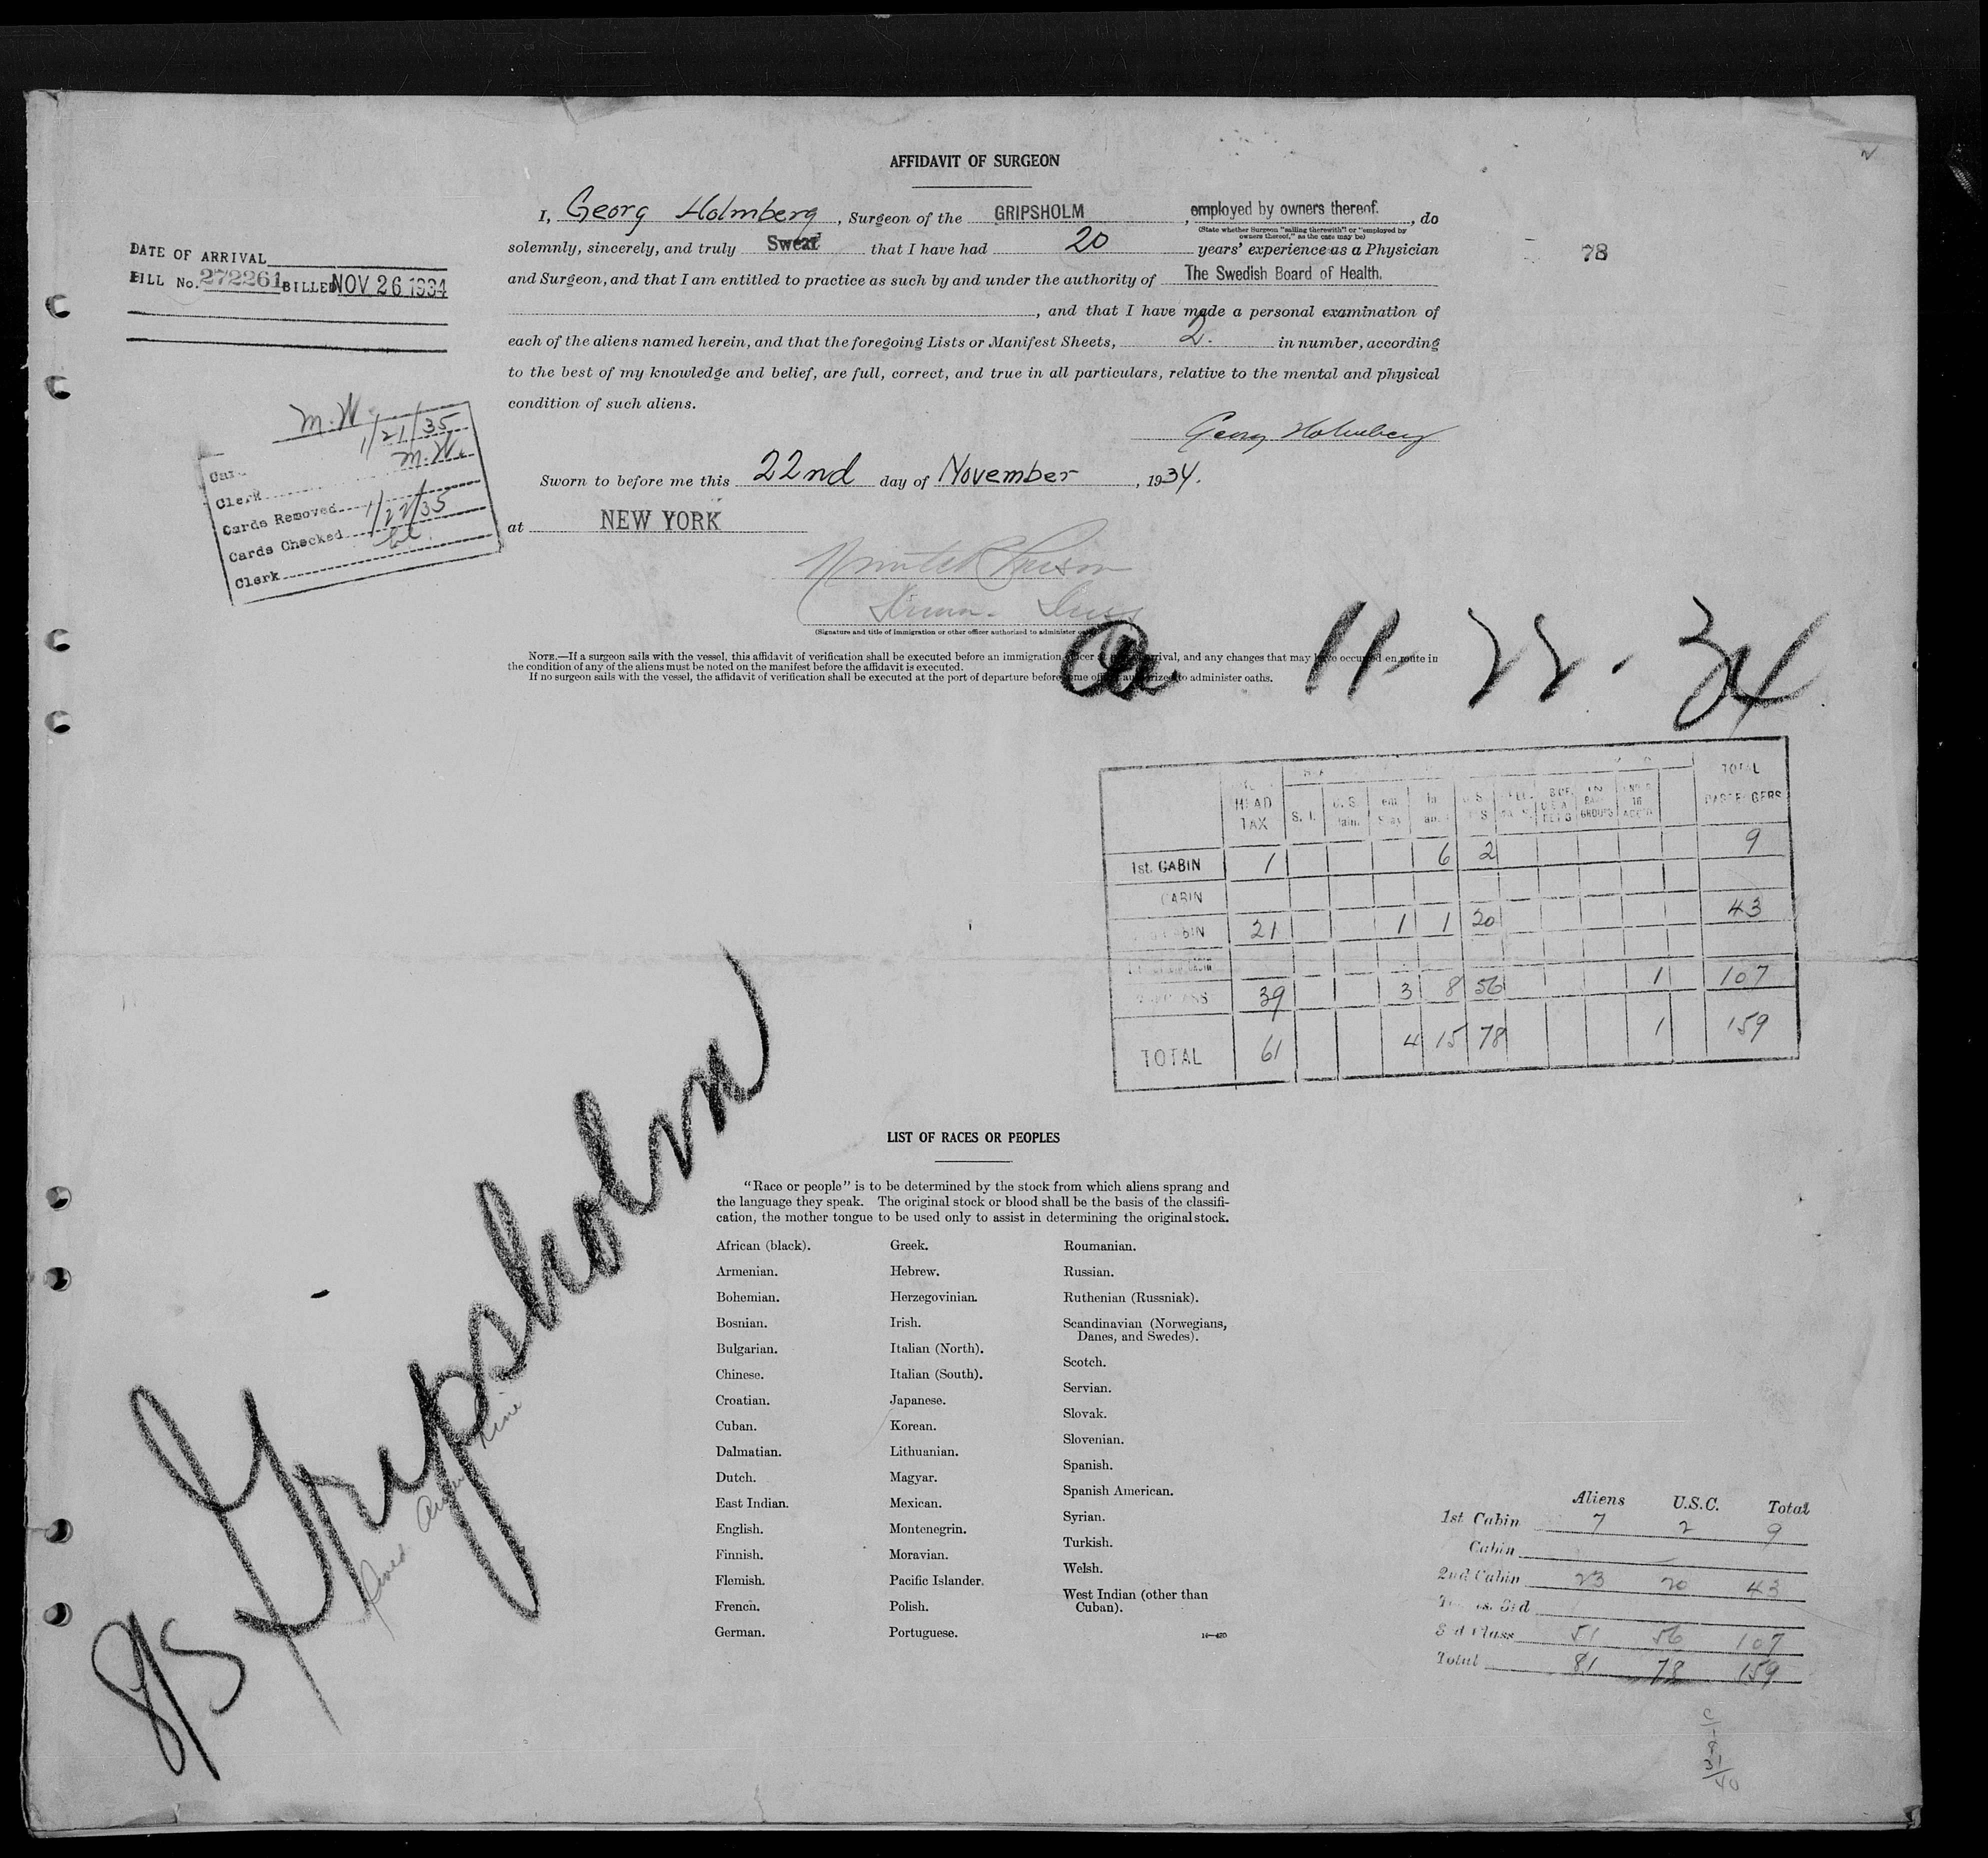 AFFIDAVIT OF SURGEON
I, Georg Holmberg, Surgeon of the GRIPSHOLM, employed by owners thereof., do
(State whether Surgeon "sailing therewith" or "employed by
owners thereof," as the case may be)
solemnly, sincerely, and truly Swear that I have had 20 years' experience as a Physician
and Surgeon, and that I am entitled to practice as such by and under the authority of The Swedish Board of Health.
, and that I have made a personal examination of
each of the aliens named herein, and that the foregoing Lists or Manifest Sheets, 2. in number, according
to the best of my knowledge and belief, are full, correct, and true in all particulars, relative to the mental and physical
condition of such aliens.
Georg Holmberg
Sworn to before me this 22nd day of November, 1934.
at NEW YORK
(Signature and title of immigration or other officer authorized to administer
NOTE.—If a surgeon sails with the vessel, this affidavit of verification shall be executed before an immigration officer at arrival, and any changes that may have occurred en route in
the condition of any of the aliens must be noted on the manifest before the affidavit is executed.
If no surgeon sails with the vessel, the affidavit of verification shall be executed at the port of departure before some officer authorized to administer oaths.
78
DATE OF ARRIVAL
BILL No. 272261 BILLED NOV 26 1934
M.W.
1/21/35
Clerk M.W.
Cards Removed 1/22/35
Cards Checked
Clerk
11-22-34
HEAD TAX S. I. U. S. TOTAL PASSENGERS
1st. CABIN 1 6 2 9
CABIN
CABIN 21 1 1 20 43
CLASS 39 3 8 56 1 107
TOTAL 61 4 15 78 1 159
S/S Gripsholm
LIST OF RACES OR PEOPLES
"Race or people" is to be determined by the stock from which aliens sprang and
the language they speak. The original stock or blood shall be the basis of the classifi-
cation, the mother tongue to be used only to assist in determining the original stock.
African (black).
Armenian.
Bohemian.
Bosnian.
Bulgarian.
Chinese.
Croatian.
Cuban.
Dalmatian.
Dutch.
East Indian.
English.
Finnish.
Flemish.
French.
German.
Greek.
Hebrew.
Herzegovinian.
Irish.
Italian (North).
Italian (South).
Japanese.
Korean.
Lithuanian.
Magyar.
Mexican.
Montenegrin.
Moravian.
Pacific Islander.
Polish.
Portuguese.
Roumanian.
Russian.
Ruthenian (Russniak).
Scandinavian (Norwegians,
Danes, and Swedes).
Scotch.
Servian.
Slovak.
Slovenian.
Spanish.
Spanish American.
Syrian.
Turkish.
Welsh.
West Indian (other than
Cuban).
14—420
Aliens U.S.C. Total
1st Cabin 7 2 9
Cabin
2nd Cabin 23 20 43
3rd
3rd Class 51 56 107
Total 81 78 159